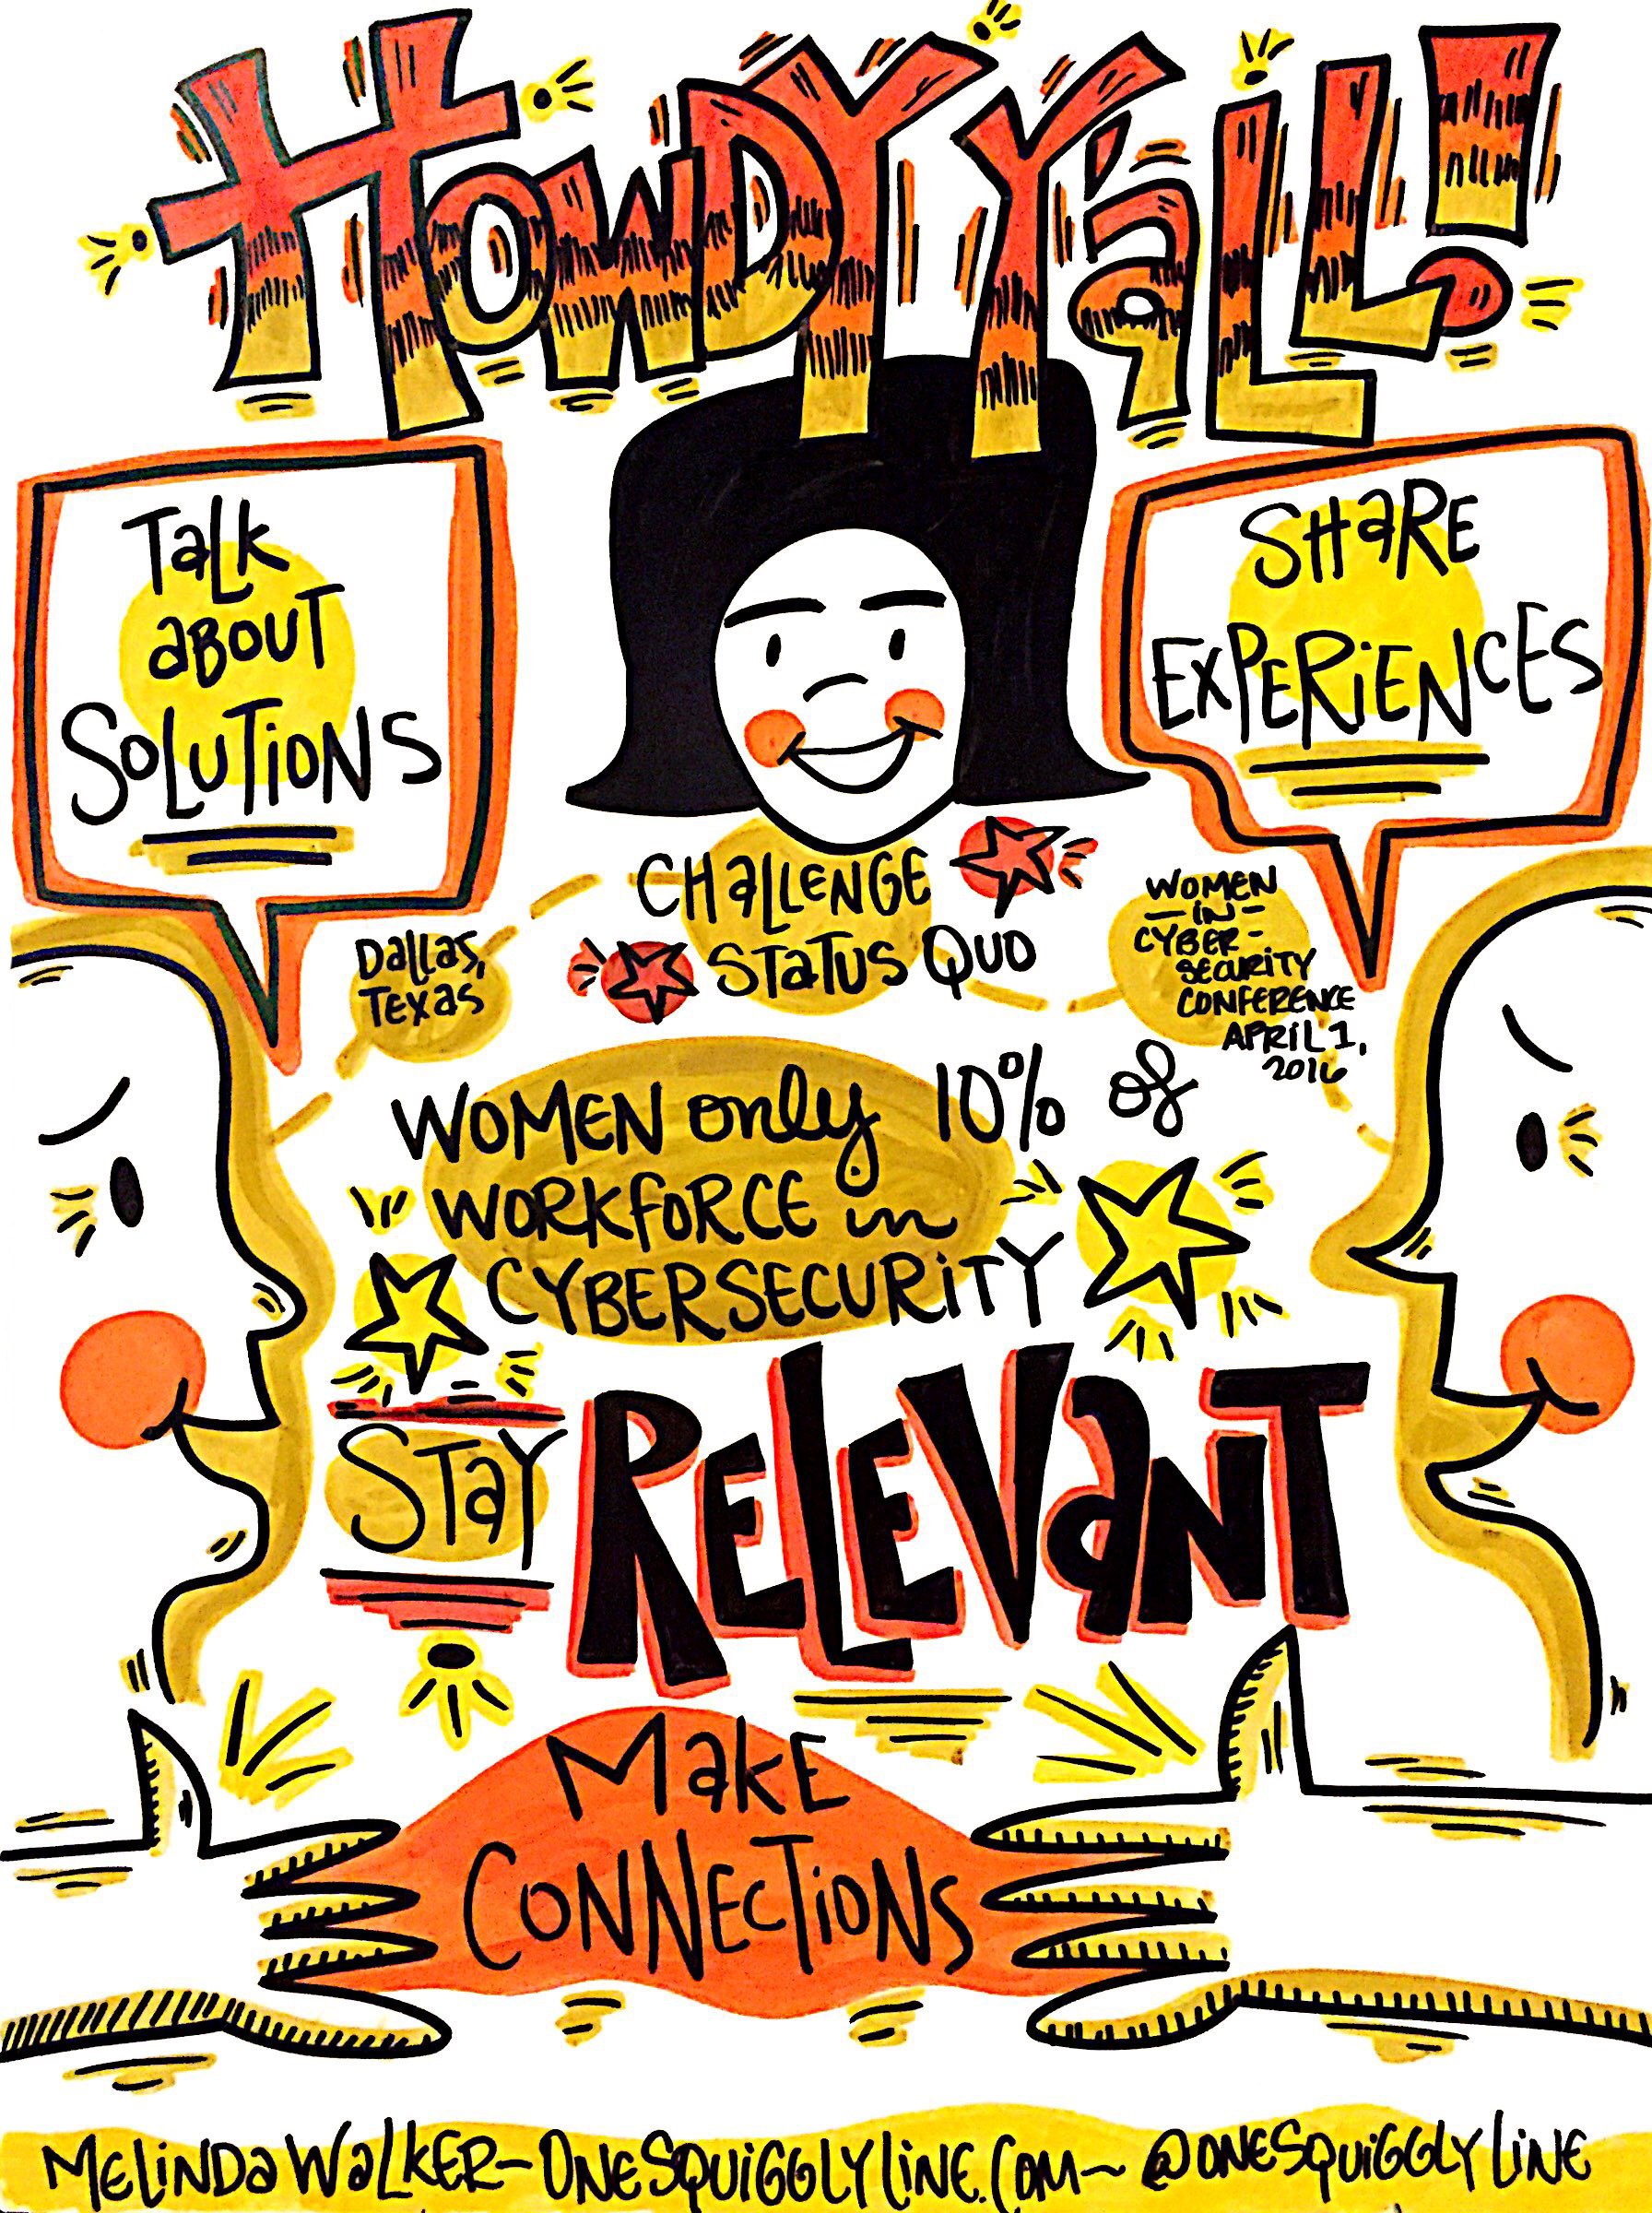 HOWDY Y'aLL!
TaLK
aBOUT
SOLUTiONS
SHaRE
EXPERiENCES
CHaLLENGE
STaTUS QUO
Dallas,
Texas
WOMEN
-IN-
CYBER-
SECURiTY
CONFERENCE
APRiL 1,
2016
WOMEN only 10% of
WORKFORCE in
CYBERSECURiTY
STaY RELEVaNT
MaKE
CONNECTiONS
MELiNDa WaLKER-ONESQUiGGLYLiNE.COM~ @ONESQUiGGLYLiNE